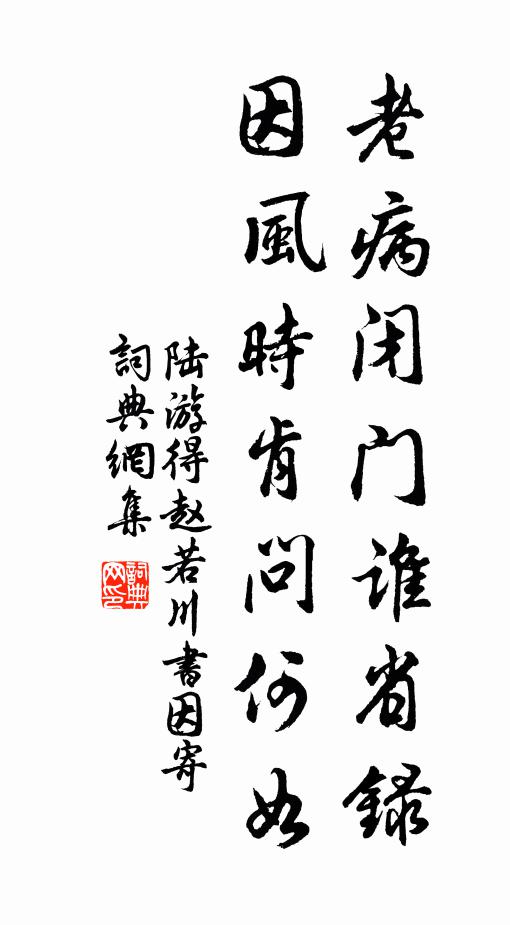 老病闭门谁省録
因風時肯問何如
陆游得赵若川書因寄
詞典網集
詞典网印